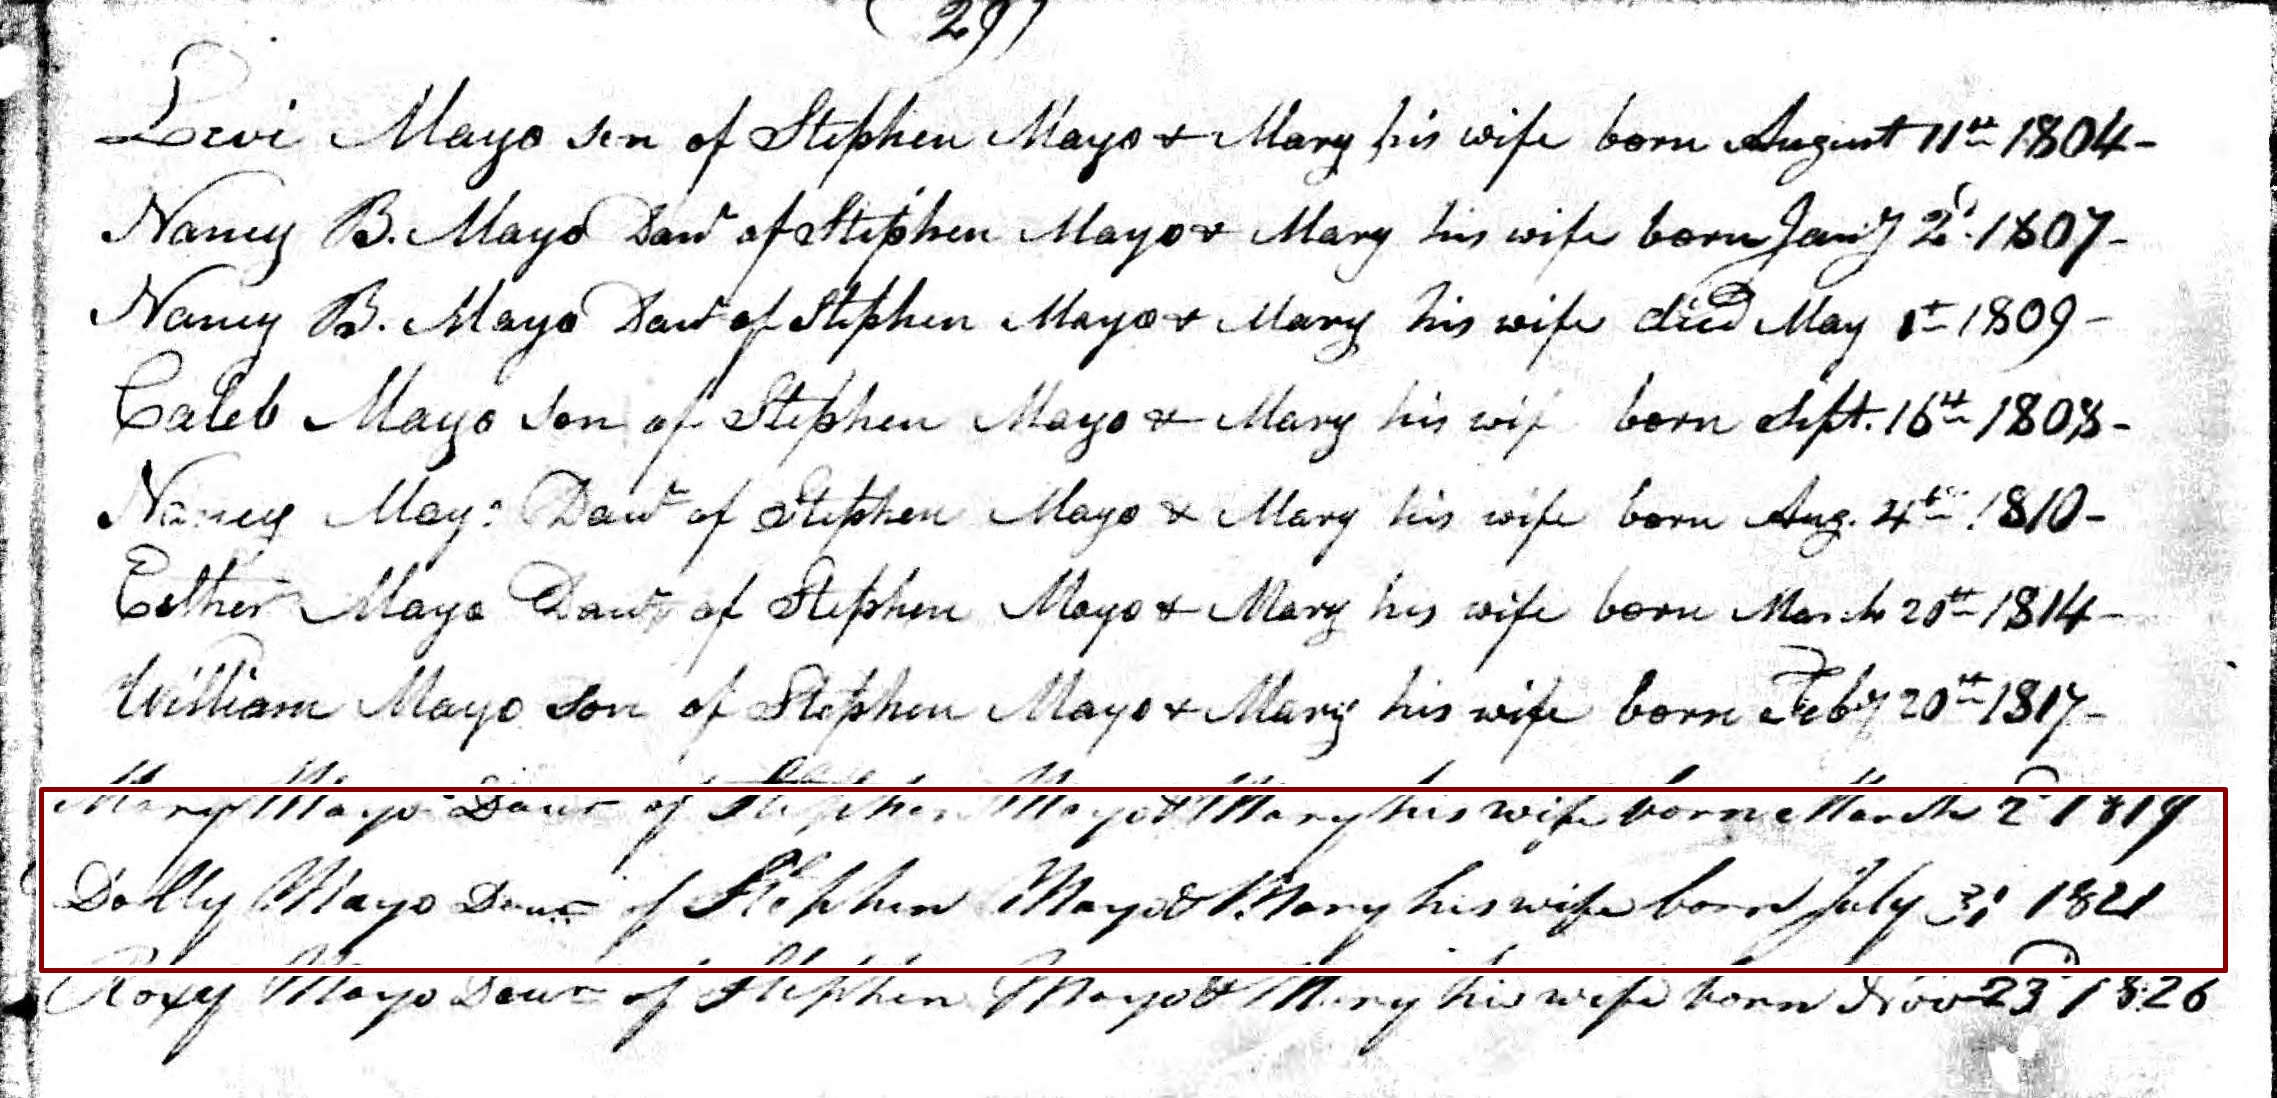 (29)
Levi Mayo son of Stephen Mayo & Mary his wife born August 11th 1804-
Nancy B. Mayo Daur of Stephen Mayo & Mary his wife born Jany 2d 1807-
Nancy B. Mayo Daur of Stephen Mayo & Mary his wife died May 1st 1809-
Caleb Mayo son of Stephen Mayo & Mary his wif born Sept. 16th 1808-
Nancy Mayo Daur of Stephen Mayo & Mary his wife born Aug. 4th 1810-
Esther Mayo Daur of Stephen Mayo & Mary his wife born March 20th 1814-
William Mayo son of Stephen Mayo & Mary his wife born Feby 20th 1817-
Mary Mayo Daur of Stephen Mayo & Mary his wife born March 2d 1819
Dolly Mayo Daur of Stephen Mayo & Mary his wife born July 31 1821
Roxy Mayo Daur of Stephen Mayo & Mary his wife born Nov 23d 1826